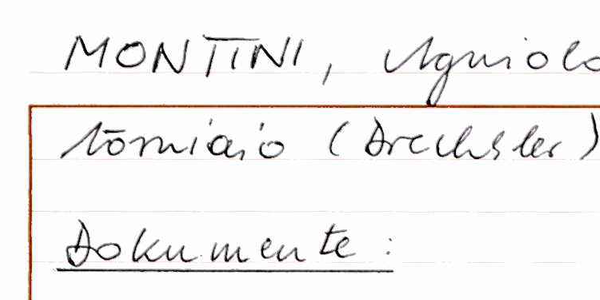 MONTINI, Agniolo
tōrniaio (Drechsler)
Dokumente: